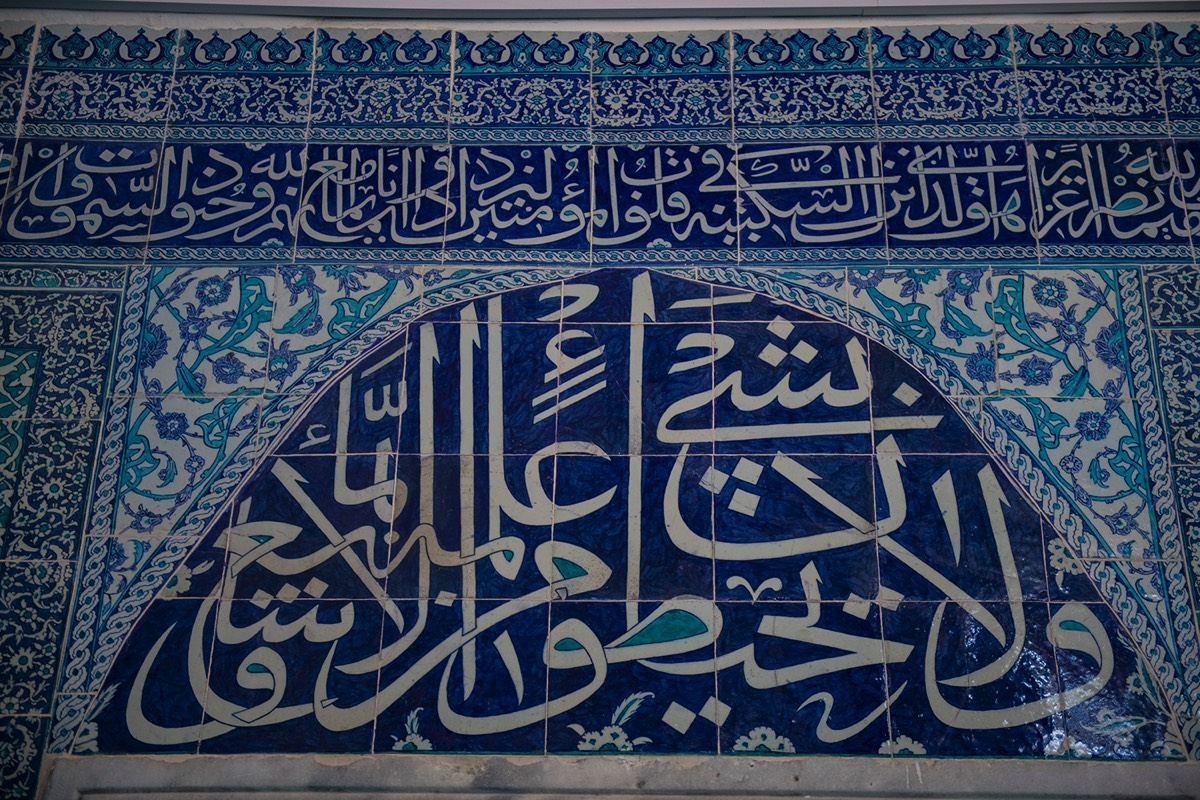 الله نصرا عزيزا هو الذي انزل السكينة في قلوب المؤمنين ليزدادوا ايمانا مع ايمانهم ولله جنود السموات
ولا يحيطون بشيء من علمه إلا بما شاء وسع